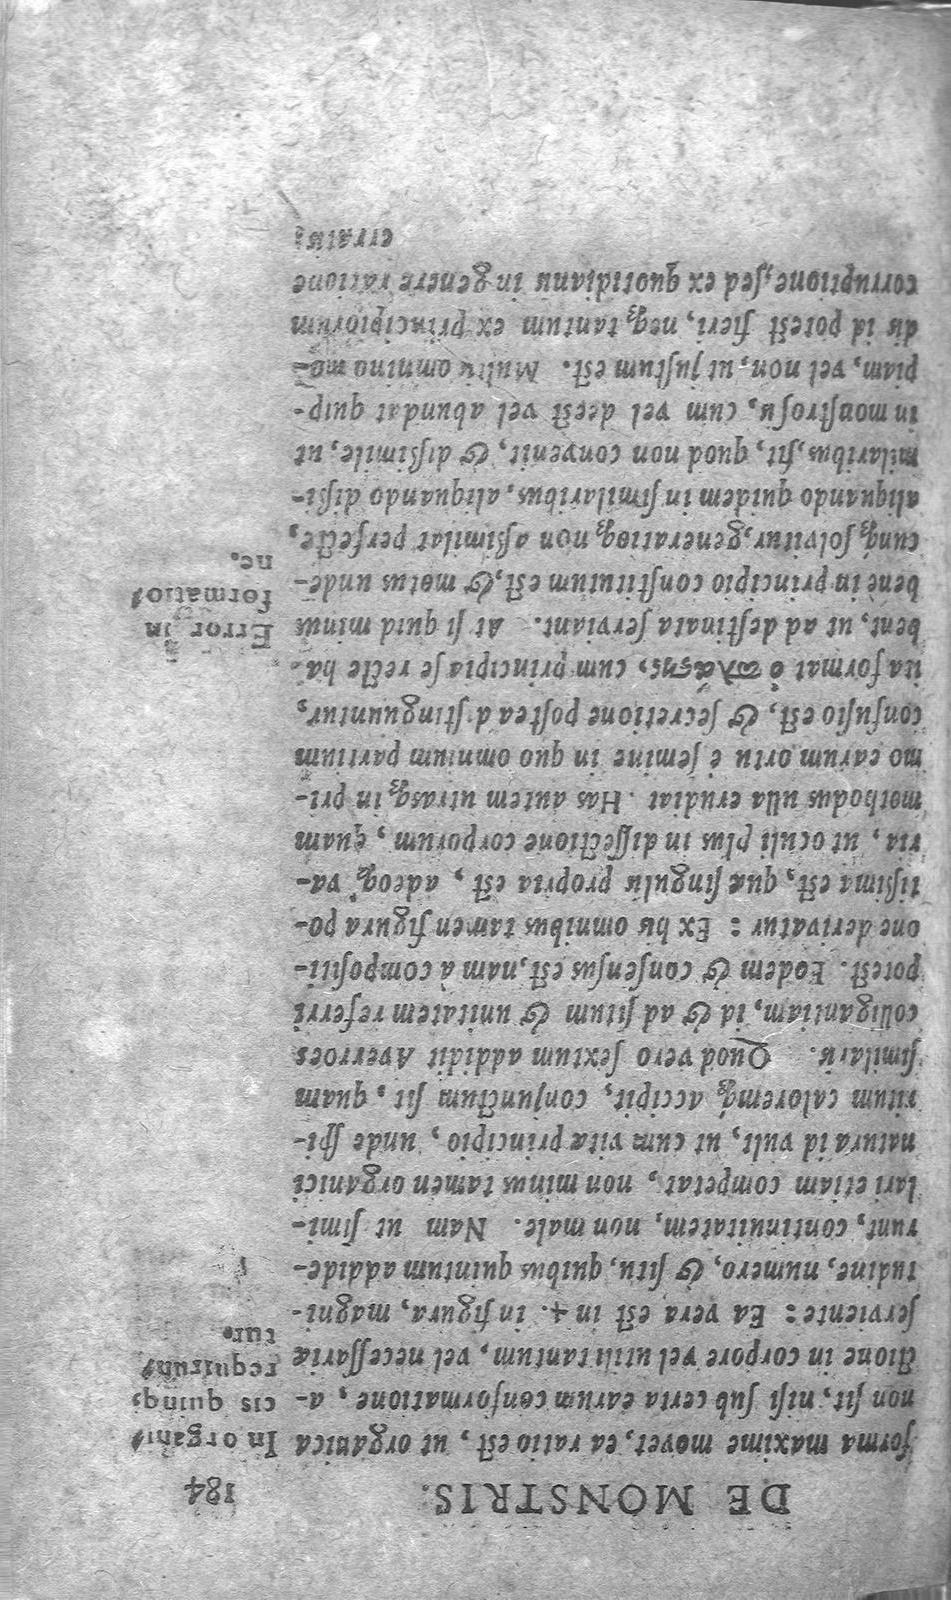 DE MONSTRIS. 184
forma maxime movet, ea ratio est, ut organica
non fit, nisi sub certa earum conformatione, a-
ctione in corpore vel utili tantum, vel necessariæ
serviente: Ea vera est in 4. in figura, magni-
tudine, numero, & situ, quibus quintum addide-
runt, continuitatem, non male. Nam ut simi-
lari etiam competat, non minus tamen organici
natura id vult, ut cum vitæ principio, unde spi-
ritum caloremq́ accipit, conjunctum sit, quam
similaris. Quod vero sextum addidit Averroes
colligantiam, id & ad situm & unitatem referri
potest. Eodem & consensus est, nam à compositi-
one derivatur: Ex his omnibus tamen figura po-
tissima est, quæ singulis propria est, adeoq́, va-
ria, ut oculi plus in dissectione corporum, quam
methodus ulla erudiat. Has autem utrasq́ in pri-
mo earum ortu è semine in quo omnium partium
confusio est, & secretione postea distinguuntur,
ita format ὁ πλάσης, cum principia se recte ha-
bent, ut ad destinata serviant. At si quid minus
bene in principio constitutum est, & motus unde-
cunq́ solvitur, generatioq́ non assimilat perfecte,
aliquando quidem in similaribus, aliquando dissi-
milaribus, fit, quod non convenit, & dissimile, ut
in monstrosis, cum vel deest vel abundat quip-
piam, vel non, ut justum est. Multis omnino mo-
dis id potest fieri, neq́ tantum ex principiorum
corruptione, sed ex quotidianis in genere ratione
erratis
In organi-
cis quinq́,
requirun-
tur.
Error in
formatio-
ne.